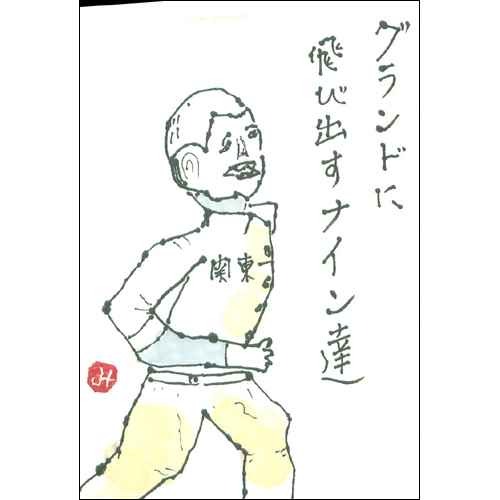 グランドに
飛び出すナイン達
関東
み